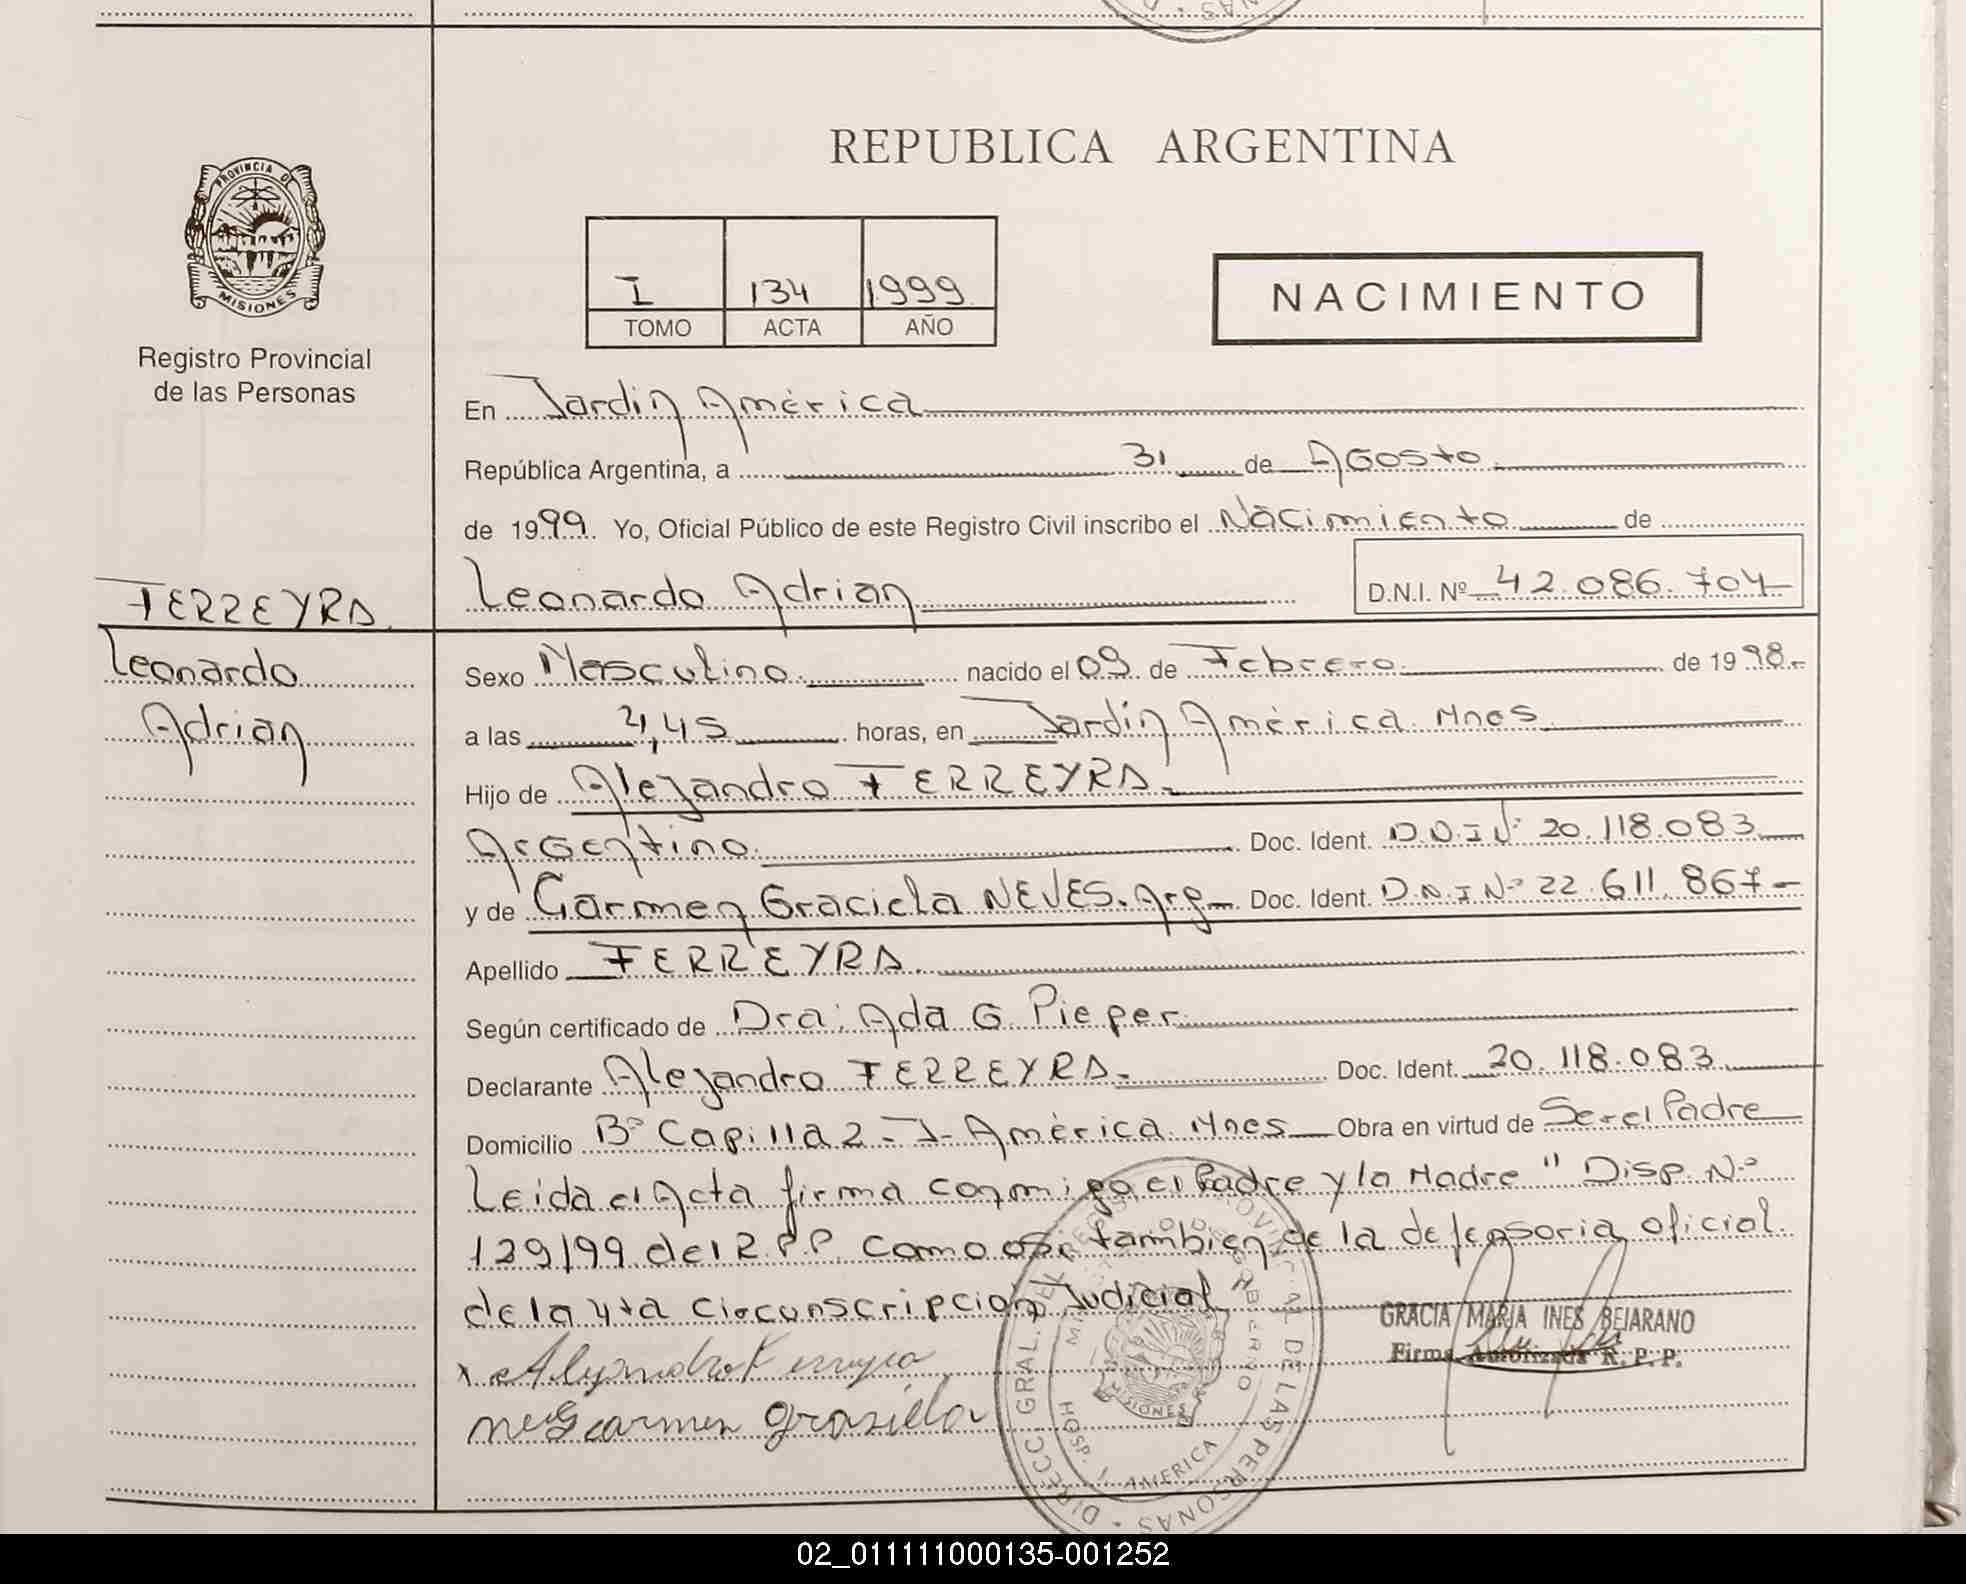 REPUBLICA ARGENTINA
PROVINCIA DE
MISIONES
Registro Provincial
de las Personas
I 134 1999
TOMO ACTA AÑO
NACIMIENTO
En Jardin América
República Argentina, a 31 de Agosto
de 1999. Yo, Oficial Público de este Registro Civil inscribo el Nacimiento de
FERREYRA
Leonardo Adrian D.N.I. Nº 42.086.704
Leonardo
Adrian
Sexo Masculino nacido el 09 de Febrero de 1998.-
a las 4,45 horas, en Jardin América. Mnes
Hijo de Alejandro FERREYRA.
Argentino. Doc. Ident. D.N.I Nº 20.118.083
y de Carmen Graciela NEVES. Arg Doc. Ident. D.N.I Nº 22.611.867-
Apellido FERREYRA.
Según certificado de Dra. Ada G. Pieper
Declarante Alejandro FERREYRA. Doc. Ident. 20.118.083
Domicilio Bº Capilla 2 - J. América. Mnes Obra en virtud de Ser el Padre
Leida el Acta firma conmigo el Padre y la Madre " Disp. Nº
129/99 del R.P.P. Como asi tambien de la defensoria oficial.
de la 4ta Circunscripcion Judicial
GRACIA MARIA INES BEJARANO
Firma Autorizada R.P.P.
x Alejandro Ferreyra
carmen grasiela
DIRECC. GRAL. DEL REGISTRO PROVINCIAL DE LAS PERSONAS
HOSP. J. AMERICA
MISIONES
02_011111000135-001252